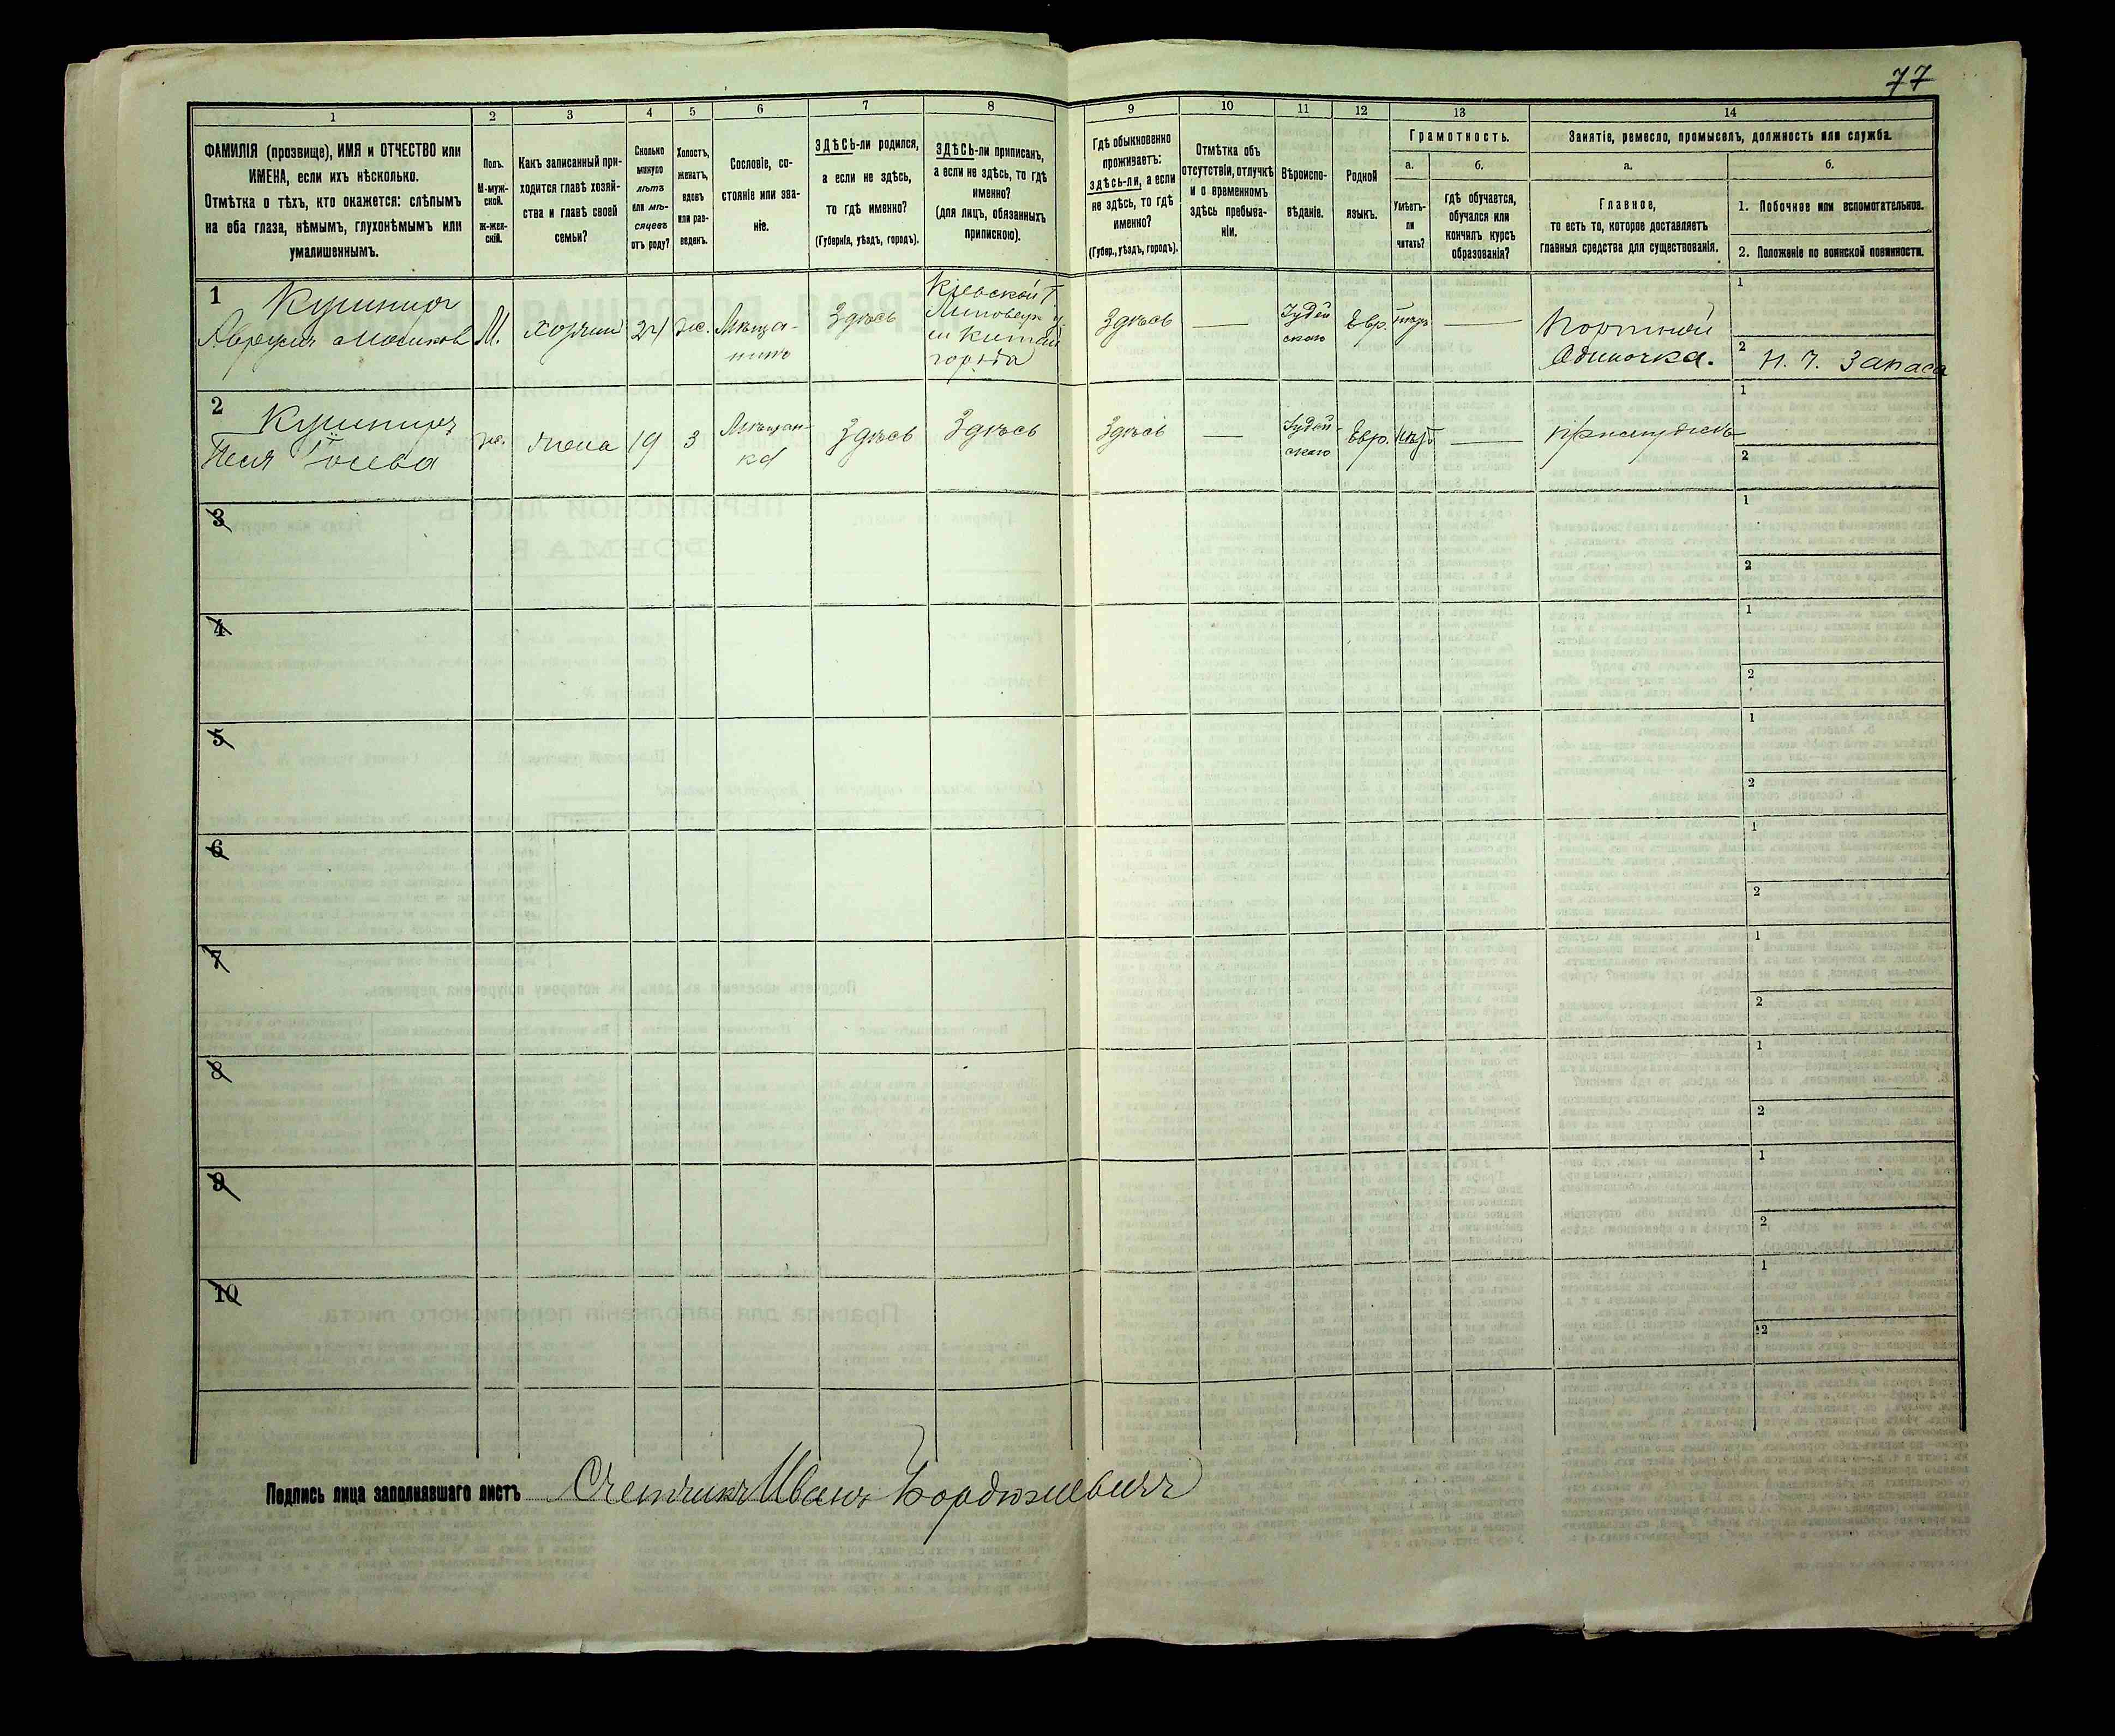 77
1 2 3 4 5 6 7 8 9 10 11 12 13 14
ФАМИЛІЯ (прозвище), ИМЯ и ОТЧЕСТВО или
ИМЕНА, если ихъ нѣсколько.
Отмѣтка о тѣхъ, кто окажется: слѣпымъ
на оба глаза, нѣмымъ, глухонѣмымъ или
умалишеннымъ.
Полъ.
М-муж-
ской.
Ж-жен-
скій.
Какъ записанный при-
ходится главѣ хозяй-
ства и главѣ своей
семьи?
Сколько
минуло
лѣтъ
или мѣ-
сяцевъ
отъ роду?
Холостъ,
женатъ,
вдовъ
или раз-
веденъ.
Сословіе, со-
стояніе или зва-
ніе.
ЗДѢСЬ-ли родился,
а если не здѣсь,
то гдѣ именно?
(Губернія, уѣздъ, городъ).
ЗДѢСЬ-ли приписанъ,
а если не здѣсь, то гдѣ
именно?
(для лицъ, обязанныхъ
припискою).
Гдѣ обыкновенно
проживаетъ:
здѣсь-ли, а если
не здѣсь, то гдѣ
именно?
(Губер., уѣздъ, городъ).
Отмѣтка объ
отсутствіи, отлучкѣ
и о временномъ
здѣсь пребыва-
ніи.
Вѣроиспо-
вѣданіе.
Родной
языкъ.
Грамотность.
а.
Умѣетъ-
ли
читать?
б.
Гдѣ обучается,
обучался или
кончилъ курсъ
образованія?
Занятіе, ремесло, промыселъ, должность или служба.
а.
Главное,
то есть то, которое доставляетъ
главныя средства для существованія.
б.
1. Побочное или вспомогательное.
2. Положеніе по воинской повинности.
1
М.
24
же.
Мѣща-
нинъ
Здѣсь
Кіевской Г.
города
Здѣсь
—
Іудей
ского
Евр.
нѣтъ
—
Портной
Одиночка.
1
2 Н. Ч. Запаса
2
же.
жена
19
З
Мѣщан-
ка
Здѣсь
Здѣсь
Здѣсь
—
Іудей-
ского
Евр.
нѣтъ
—
при мужѣ
1
2
3
1
2
4
1
2
5
1
2
6
1
2
7
1
2
8
1
2
9
1
2
10
1
2
Подпись лица заполнявшаго листъ Счетчикъ Иванъ